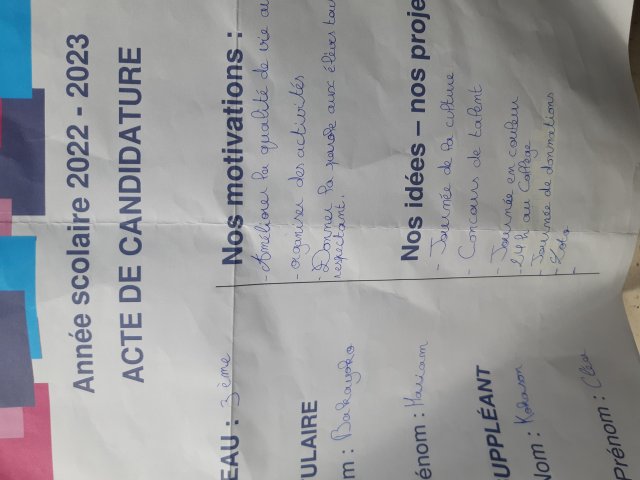 Année scolaire 2022 - 2023
ACTE DE CANDIDATURE
EAU : 3ème
TULAIRE
m : Bakayoko
énom : Mariam
UPPLÉANT
Nom :
Prénom : Cléa
Nos motivations :
- Améliorer la qualité de vie au
- organiser des activités
- Donner la parole aux élèves tout
respectant.
Nos idées – nos proje
- Journée de la culture
- Concours de talent
- Journée en couleur
- 24h au Collège
- Journée de donnations
-
-